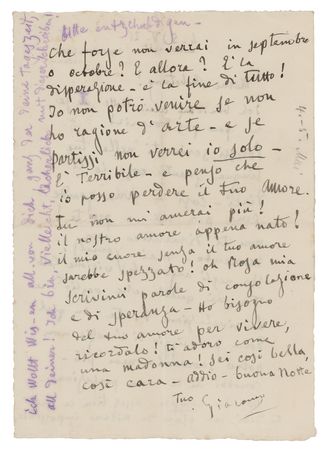 Bitte entschuldigen -
Che forse non verrei in septembre
o octobre? E allore? E la
disperazione - e la fine di tutto!
Io non potri venire se non
ho ragione d'arte - e se
partissi non verrei io solo -
E' Terribile - e penso che
io posso perdere il tuo amore.
Tu non mi amerai più!
il nostro amore appena nato!
il mio cuore senza il tuo amore
sarebbe spezzato! oh Rosa mia
scrivimi parole di consolazione
e di speranza - Ho bisogno
del tuo amore per vivere,
ricordalo! ti adoro come
una madonna! Sei così bella,
così cara - addio - buona Notte
Tuo Giacomo
ich wollt Wissen all von Dich, und der deine Tageszeit,
all deinen! Ich bin, vielleicht, lächerlich mit diese